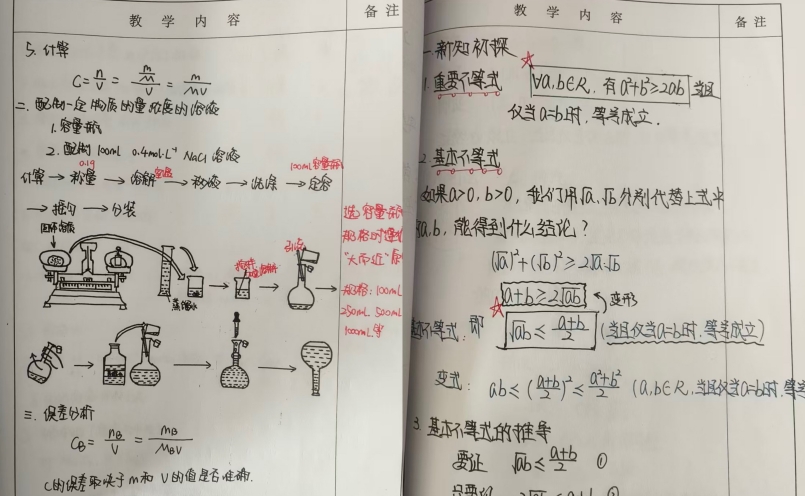 教 学 内 容
备 注
5. 计算
C = n/V = (m/M)/V = m/MV
二、配制一定物质的量浓度的溶液
1. 容量瓶
2. 配制 100mL 0.4mol·L⁻¹ NaCl 溶液
0.1g
室温
100mL容量瓶
计算 → 称量 → 溶解 → 移液 → 洗涤 → 定容
→ 摇匀 → 分装
固体溶质
蒸馏水
搅拌
引流
选容量瓶
规格时遵
"大而近"原
规格：100mL
250mL 500mL
1000mL等
三、误差分析
C_B = n_B/V = m_B/M_BV
C的误差取决于m和V的值是否准确.
教 学 内 容
备 注
一.新知初探
1. 重要不等式
∀a,b∈R, 有a²+b²≥2ab 当且
仅当a=b时, 等号成立.
2. 基本不等式
如果a>0, b>0, 我们用√a, √b分别代替上式中
的a, b, 能得到什么结论?
(√a)²+(√b)²≥2√a·√b
a+b≥2√ab
变形
基本不等式: 即 √ab ≤ (a+b)/2 (当且仅当a=b时, 等号成立)
变式: ab ≤ ((a+b)/2)² ≤ (a²+b²)/2 (a,b∈R, 当且仅当a=b时, 等号
3. 基本不等式的推导
要证 √ab ≤ (a+b)/2 ①